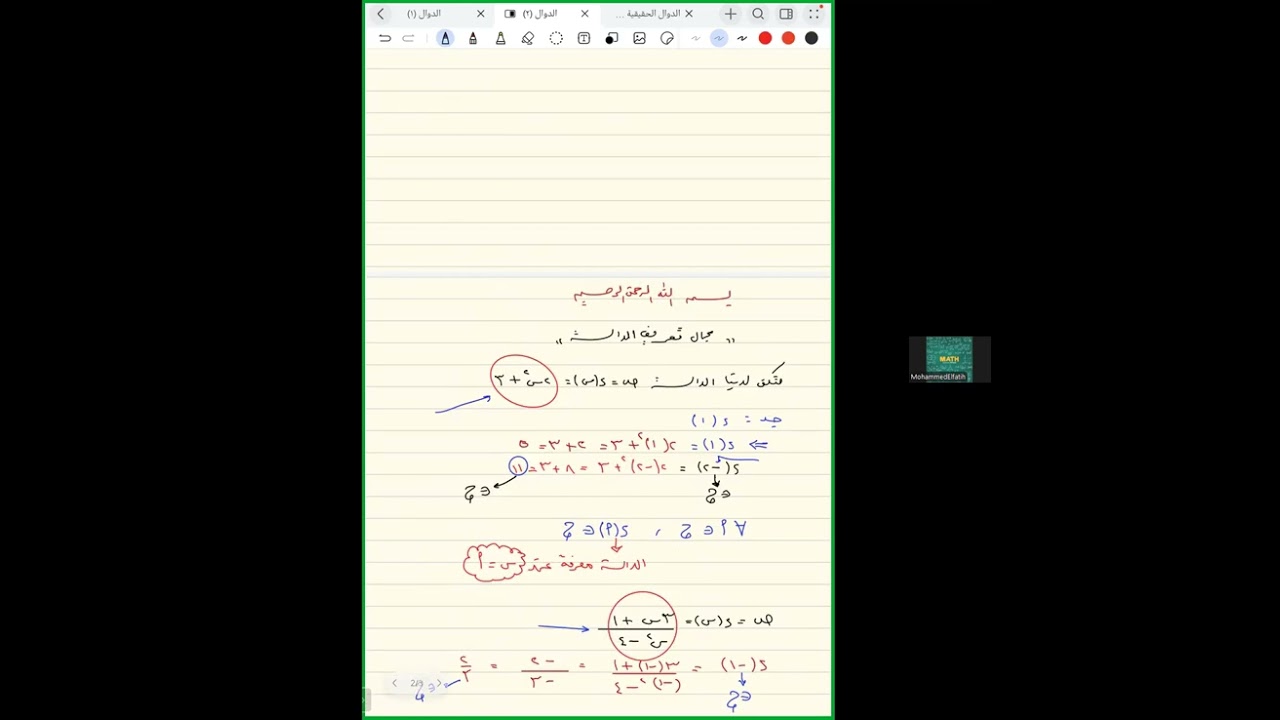 الدوال (١) الدوال (٢) الدوال الحقيقية ...
بسم الله الرحمن الرحيم
" مجال تعريف الدالة "
لتكن لدينا الدالة ص = د(س) = ٢س٢ + ٣
جد : د(١)
⇐ د(١) = ٢(١)٢ + ٣ = ٢ + ٣ = ٥
د(-٢) = ٢(-٢)٢ + ٣ = ٨ + ٣ = ١١
∈ ح ∈ ح
∀ أ ∈ ح ، د(أ) ∈ ح
الدالة معرفة عند س = أ
ص = د(س) = (٣س + ١) / (س٢ - ٤)
د(-١) = (٣(-١) + ١) / ((-١)٢ - ٤) = -٢ / -٣ = ٢/٣
∈ ح ∈ ح
MATH
MohammedElfatih